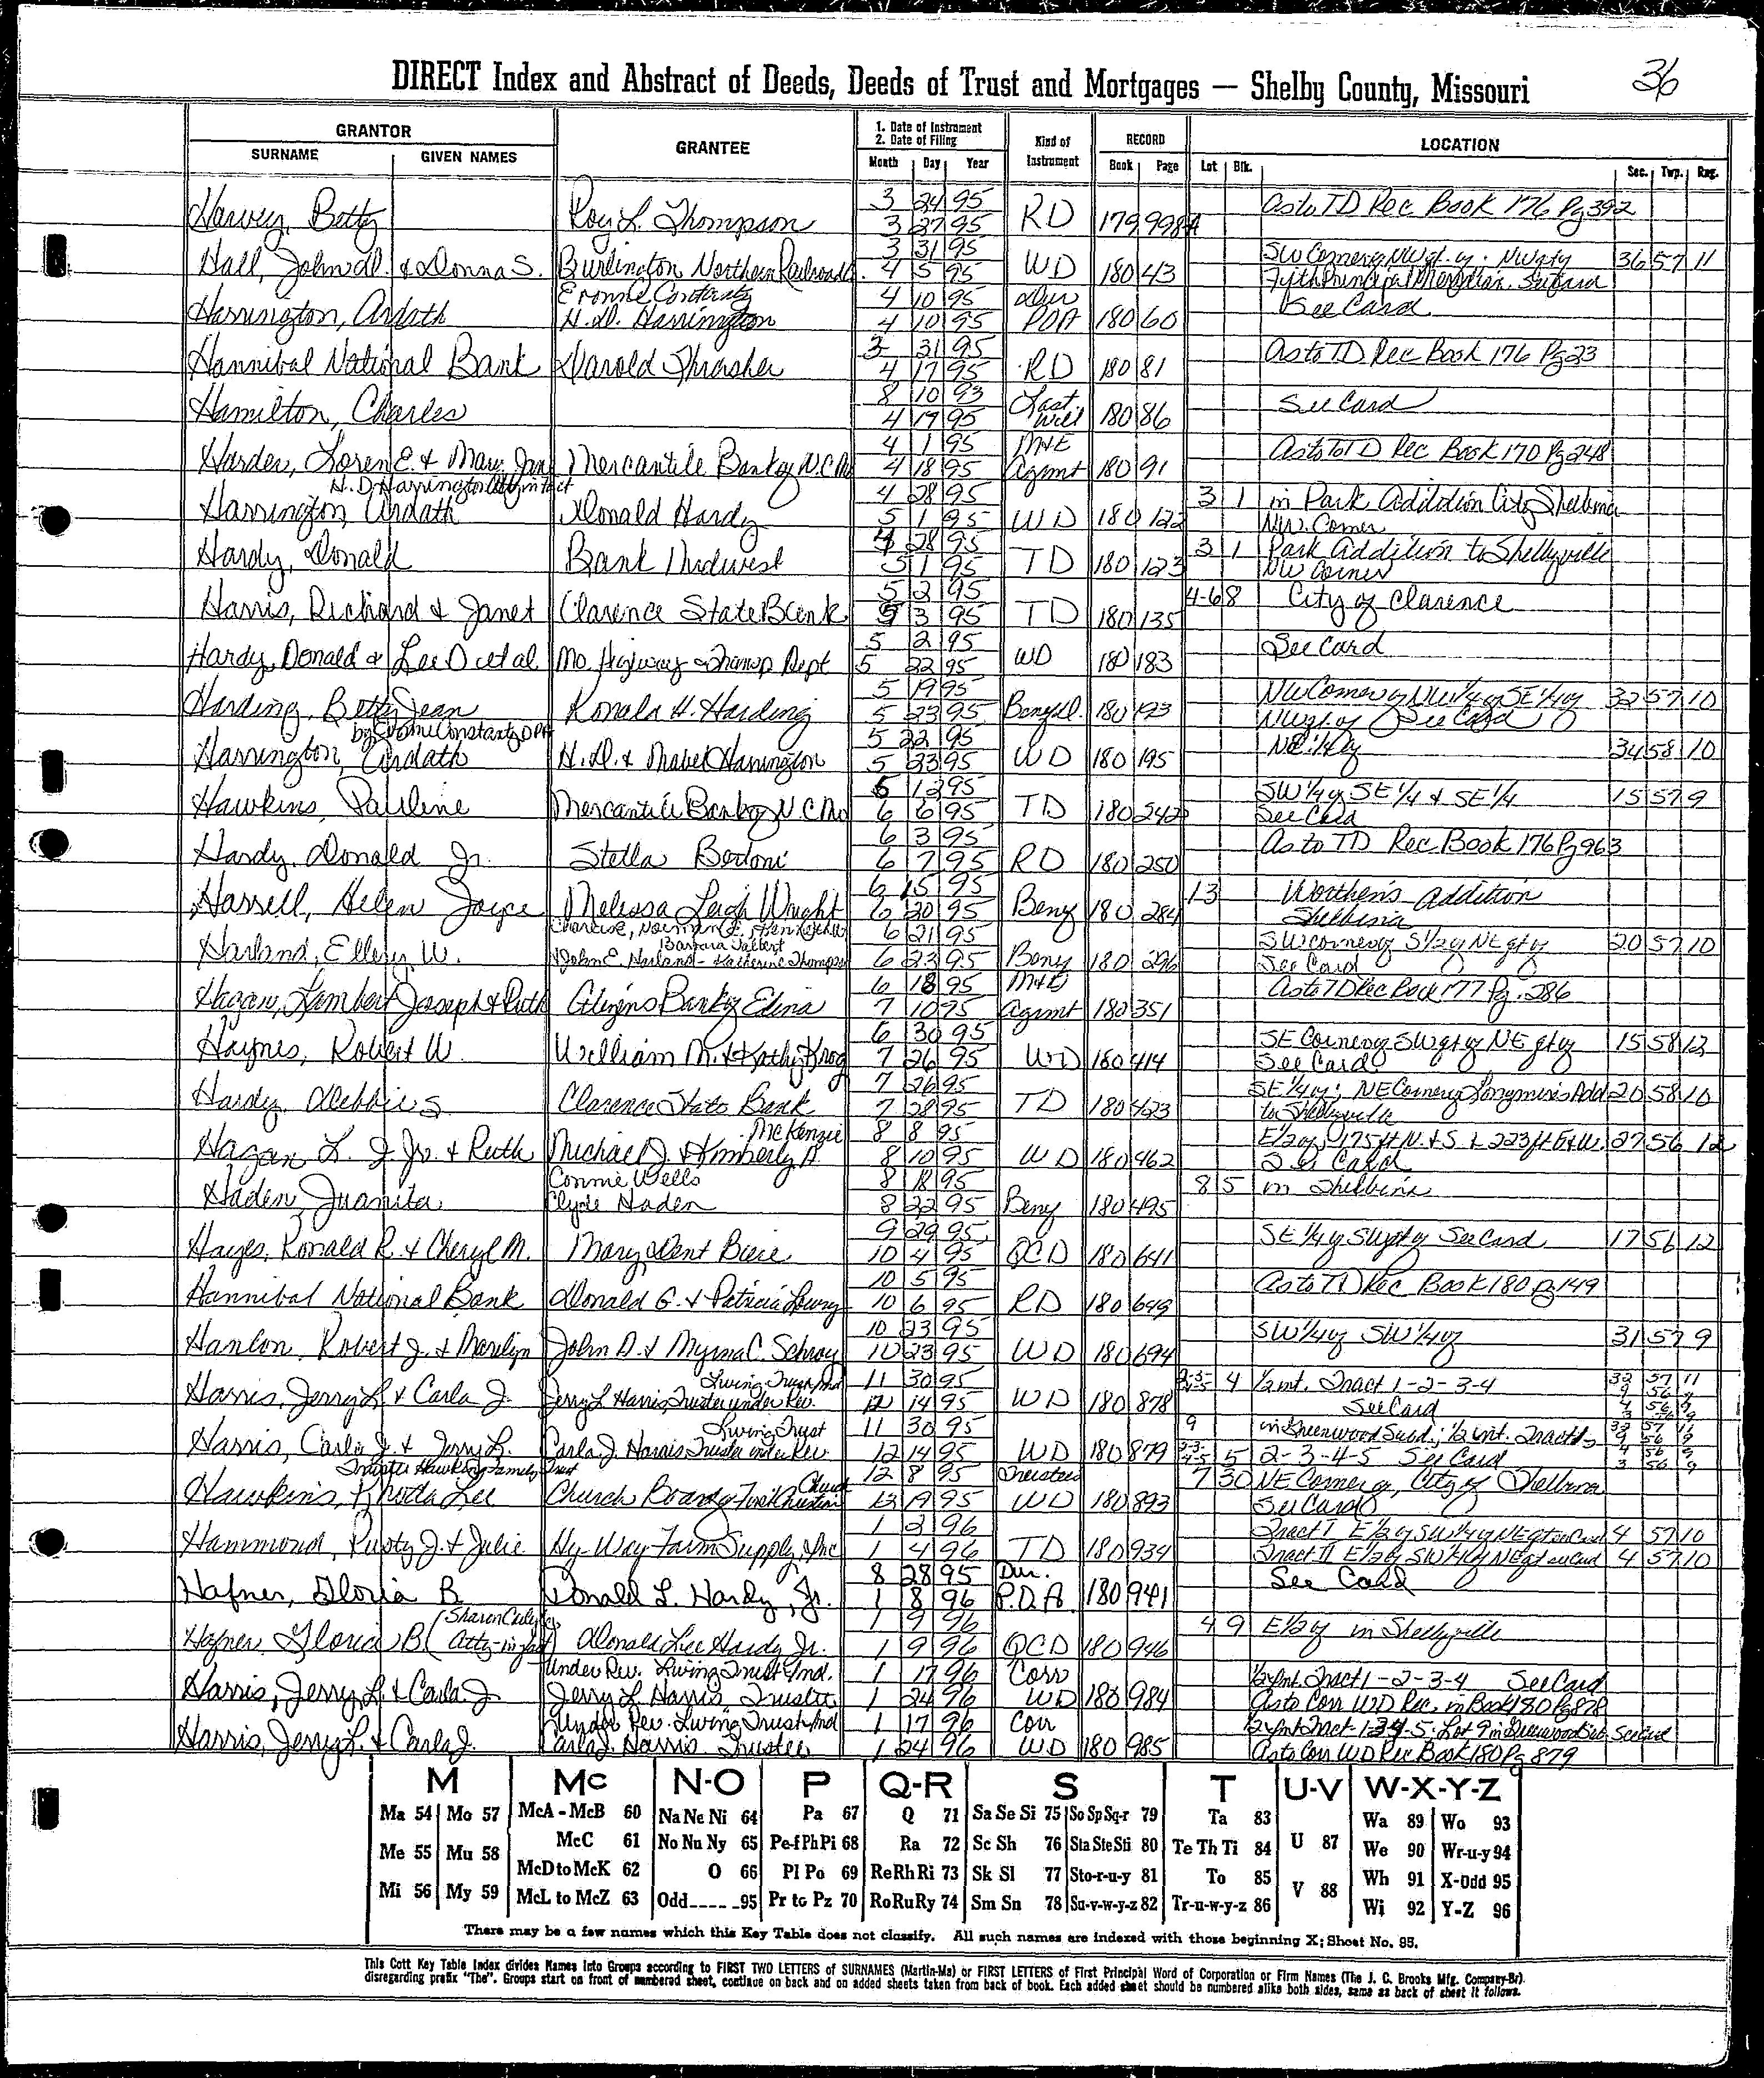 36
DIRECT Index and Abstract of Deeds, Deeds of Trust and Mortgages — Shelby County, Missouri
GRANTOR
SURNAME GIVEN NAMES
GRANTEE
1. Date of Instrument
2. Date of Filing
Month Day Year
Kind of Instrument
RECORD
Book Page
LOCATION
Lot Blk. Sec. Twp. Rng.
Harvey, Betty Roy L. Thompson 3 24 95 3 27 95 RD 179 998A As to TD Rec Book 176 Pg 392
Hall, John D. & Donna S. Burlington Northern Railroad Co. 3 31 95 4 5 95 WD 180 43 SW Corner NW 36 57 11
Fifth Principal Meridian. See Card
Harrington, Ardath H. D. Harrington 4 10 95 4 10 95 Dur POA 180 60 See Card
Hannibal National Bank Harold Thrasher 3 31 95 4 17 95 RD 180 81 As to TD Rec Book 176 Pg 23
Hamilton, Charles 8 10 93 4 17 95 Last Will 180 86 See Card
Harder, Loren E. & Mary Jane Mercantile Bank of N.C. Mo 4 1 95 4 18 95 M&E Agmt 180 91 As to TD Rec Book 170 Pg 248
H. D. Harrington Atty in fact
Harrington, Ardath Donald Hardy 4 28 95 5 1 95 WD 180 122 3 1 in Park Addition City Shelbina
NW. Corner
Hardy, Donald Bank Midwest 4 28 95 5 1 95 TD 180 123 3 1 Park Addition to Shelbyville
NW Corner
Harris, Richard & Janet Clarence State Bank 5 2 95 5 3 95 TD 180 135 4-6 8 City of Clarence
Hardy, Donald & Lee D et al Mo Highway & Transp Dept 5 2 95 5 22 95 WD 180 183 See Card
Harding, Betty Jean Ronald H. Harding 5 19 95 5 23 95 Beny D. 180 193 NW Corner of NW 1/4 of SE 1/4 of 32 57 10
See Card
by Evonne Constantz DPA
Harrington, Ardath H. D. & Mabel Harrington 5 22 95 5 23 95 WD 180 195 NE 1/4 of 34 58 10
Hawkins, Pauline Mercantile Bank of N.C. Mo 6 6 95 TD 180 242 SW 1/4 of SE 1/4 & SE 1/4 15 57 9
See Card
Hardy, Donald Jr. Stella Bodoni 6 3 95 6 7 95 RD 180 250 As to TD Rec Book 176 Pg 963
Harrell, Helen Joyce Melissa Leigh Wright 6 15 95 6 20 95 Beny 180 284 13 Worthen's Addition
Shelbina
Harland, Ellery W. Barbara Talbert
John E. Harland - Katherine Thompson 6 21 95 6 23 95 Beny 180 296 SW corner of S 1/2 of NE qt of 20 57 10
See Card
Hagan, Lambert Joseph & Ruth Citizens Bank of Edina 6 18 95 7 10 95 M&E Agmt 180 351 As to TD Rec Book 177 Pg. 286
Haynes, Robert W. William M. & Kathy Krog 6 30 95 7 26 95 WD 180 414 SE Corner of SW qt of NE qt of 15 58 12
See Card
Hardy, Debbie S Clarence State Bank 7 26 95 7 28 95 TD 180 423 SE 1/4 of; NE Corner of Longmire's Add 20 58 10
to Shelbyville
Hagan L. J. Jr. & Ruth Michael J. & Kimberly A. McKenzie 8 8 95 8 10 95 WD 180 462 E 1/2 of, 175 ft N. & S. & 223 ft E & W. 27 56 12
See Card
Haden, Juanita Connie Wells
Clyde Haden 8 18 95 8 22 95 Beny 180 495 8 5 in Shelbina
Hayes, Ronald R. & Cheryl M. Mary Dent Biere 9 29 95 10 4 95 QCD 180 641 SE 1/4 of SW qt of See Card 17 56 12
Hannibal National Bank Donald G. & Patricia Lowry 10 5 95 10 6 95 RD 180 649 As to TD Rec Book 180 Pg 149
Hanlon, Robert J. & Marilyn John D. & Myrna C. Schroy 10 23 95 10 23 95 WD 180 694 SW 1/4 of SW 1/4 of 31 57 9
Harris, Jerry L. & Carla J. Jerry L Harris Trustee under Rev. Living Trust Ind 11 30 95 12 14 95 WD 180 878 4 1/2 int. Tract 1-2-3-4
See Card
Harris, Carla J. & Jerry L. Carla J. Harris Trustee under Rev Living Trust 11 30 95 12 14 95 WD 180 879 9 in Greenwood Subd.; 1/2 int. Tract 1-
5 2-3-4-5 See Card
Trustee Hawkins Family Trust
Hawkins, Rhoda Lee Church Board of First Christian Church 12 8 95 12 19 95 Trustees WD 180 893 7 30 NE Corner of, City of Shelbina
See Card
Hammond, Rusty J. & Julie Hy-Way Farm Supply, Inc 1 2 96 1 4 96 TD 180 934 Tract I E 1/2 of SW 1/4 of NE qt see Card 4 57 10
Tract II E 1/2 of SW 1/4 of NE qt see Card 4 57 10
Hafner, Gloria B Donald L. Hardy, Jr. 8 28 95 1 8 96 Dur. P.O.A 180 941 See Card
Hafner Gloria B (Atty-in-fact) Donald Lee Hardy Jr. 1 9 96 1 9 96 QCD 180 946 4 9 E 1/2 of in Shelbyville
Harris, Jerry L & Carla J Under Rev. Living Trust Ind.
Jerry L Harris, Trustee 1 17 96 1 24 96 Corr WD 180 984 1/2 Int. Tract 1-2-3-4 See Card
As to Corr WD Rec. in Book 180 Pg 878
Harris, Jerry L. & Carla J. Under Rev. Living Trust Ind
Carla J. Harris Trustee 1 17 96 1 24 96 Corr WD 180 985 Lot 9 in Greenwood Sub. See Card
As to Corr WD Rec Book 180 Pg 879
M Mc N-O P Q-R S T U-V W-X-Y-Z
Ma 54 Mo 57 McA - McB 60 Na Ne Ni 64 Pa 67 Q 71 Sa Se Si 75 So Sp Sq-r 79 Ta 83 U 87 Wa 89 Wo 93
Me 55 Mu 58 McC 61 No Nu Ny 65 Pe-f Ph Pi 68 Ra 72 Sc Sh 76 Sta Ste Sti 80 Te Th Ti 84 We 90 Wr-u-y 94
McD to McK 62 O 66 Pl Po 69 Re Rh Ri 73 Sk Sl 77 Sto-r-u-y 81 To 85 V 88 Wh 91 X-Odd 95
Mi 56 My 59 McL to McZ 63 Odd 95 Pr to Pz 70 Ro Ru Ry 74 Sm Sn 78 Su-v-w-y-z 82 Tr-u-w-y-z 86 Wi 92 Y-Z 96
There may be a few names which this Key Table does not classify. All such names are indexed with those beginning X; Sheet No. 95.
This Cott Key Table Index divides Names into Groups according to FIRST TWO LETTERS of SURNAMES (Martin-Ma) or FIRST LETTERS of First Principal Word of Corporation or Firm Names (The J. C. Brooks Mfg. Company-Br).
disregarding prefix "The". Groups start on front of numbered sheet, continue on back and on added sheets taken from back of book. Each added sheet should be numbered alike both sides, same as back of sheet it follows.